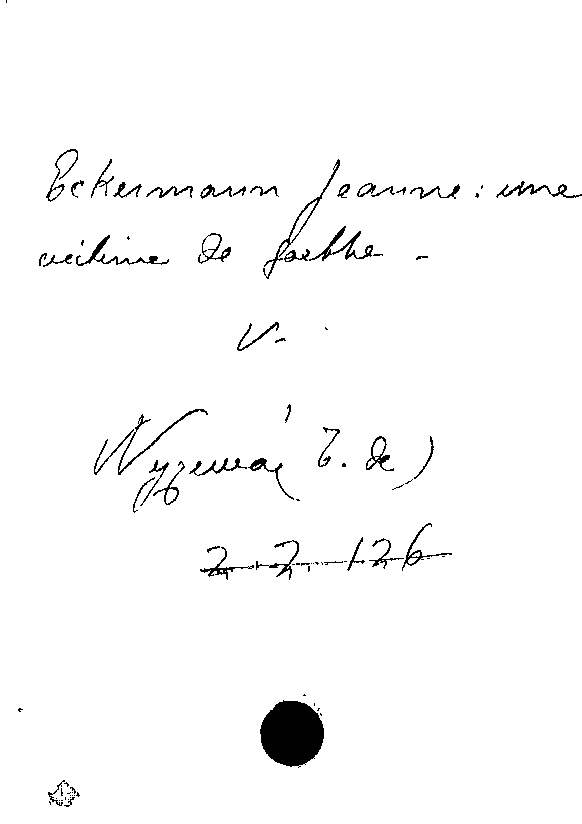 Eckermann Jeanne: une
victime de Goethe -
V.
Wyzewa (T. de)
2. 2. 126